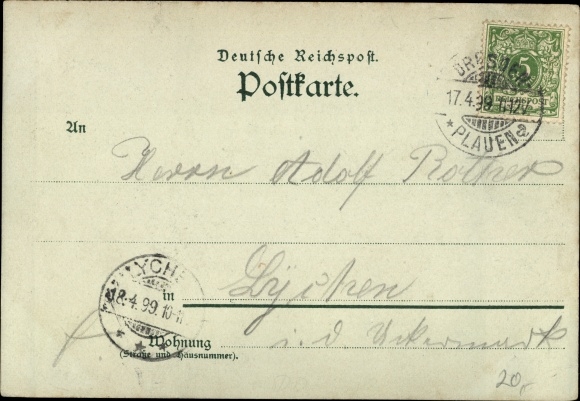 Deutsche Reichspost.
Postkarte.
DRESDEN
5
REICHSPOST
17.4.99.
* PLAUEN a
An
Herrn Adolf Rother
LYCHEN
18.4.99.10-11
in
Lychen
Wohnung
(Straße und Hausnummer).
i. d Uckermark
20,-